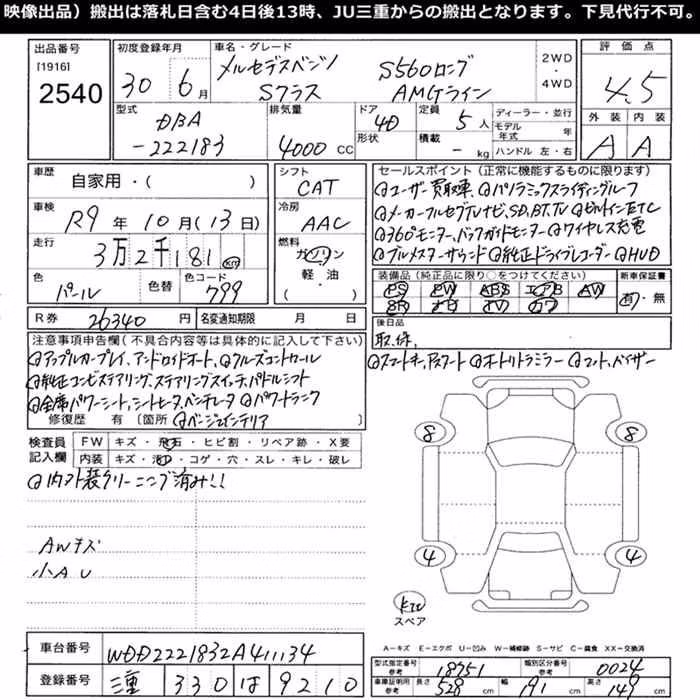 映像出品）搬出は落札日含む4日後13時、JU三重からの搬出となります。下見代行不可。
出品番号
[1916]
2540
初度登録年月
30年 6月
車名・グレード
メルセデスベンツ S560ロング
Sクラス AMGライン
2WD・4WD
評価点
4.5
外装 内装
A A
型式
DBA
-222183
排気量
4000 CC
ドア
4D
形状
定員
5人
積載
- kg
ディーラー・並行
モデル年式 年
ハンドル 左・右
車歴
自家用・( )
車検
R9年10月(13日)
走行
3万2千181 km
色
パール
色替
色コード
799
シフト
CAT
冷房
AAC
燃料
ガソリン
軽・油
( )
セールスポイント（正常に機能するものに限ります）
◎ユーザー買取車、◎パノラミックスライディングルーフ
◎メーカーフルセグTVナビ、SD、BT、TV ◎ビルトインETC
◎360°モニター、バックガイドモニター ◎ワイヤレス充電
◎ブルメスターサラウンド ◎純正ドライブレコーダー ◎HUD
装備品（純正品に限り○をつけてください）
PS PW ABS エアB AW
SR ナビ TV カワ
新車保証書
有・無
R券
26340円
名変通知期限 月 日
後日品
取、保、
注意事項申告欄（不具合内容等は具体的に記入して下さい）
◎アップルカープレイ、アンドロイドオート、◎クルーズコントロール
◎純正コンビステアリング、ステアリングスイッチ、パドルシフト
◎全席パワーシート、シートヒータ、ベンチレータ ◎パワートランク
修復歴 有〔箇所 ◎ベージュインテリア
◎スマートキー、Pスタート ◎オートリトラミラー ◎マット、バイザー
検査員記入欄
FW キズ・飛石・ヒビ割・リペア跡・X要
内装 キズ・汚・コゲ・穴・スレ・キレ・破レ
◎内外装クリーニング済み!!
AWキズ
小AU
8 8
4 4
キット
スペア
A－キズ E－エクボ U－凹み W－補修跡 S－サビ C－腐食 XX－交換済
車台番号
WDD2221832A411134
登録番号
三重 330 は 9210
型式指定番号
参考
18751
類別区分番号
参考
0024
車庫証明用
参考
長さ 528 cm 幅 191 cm 高さ 149 cm